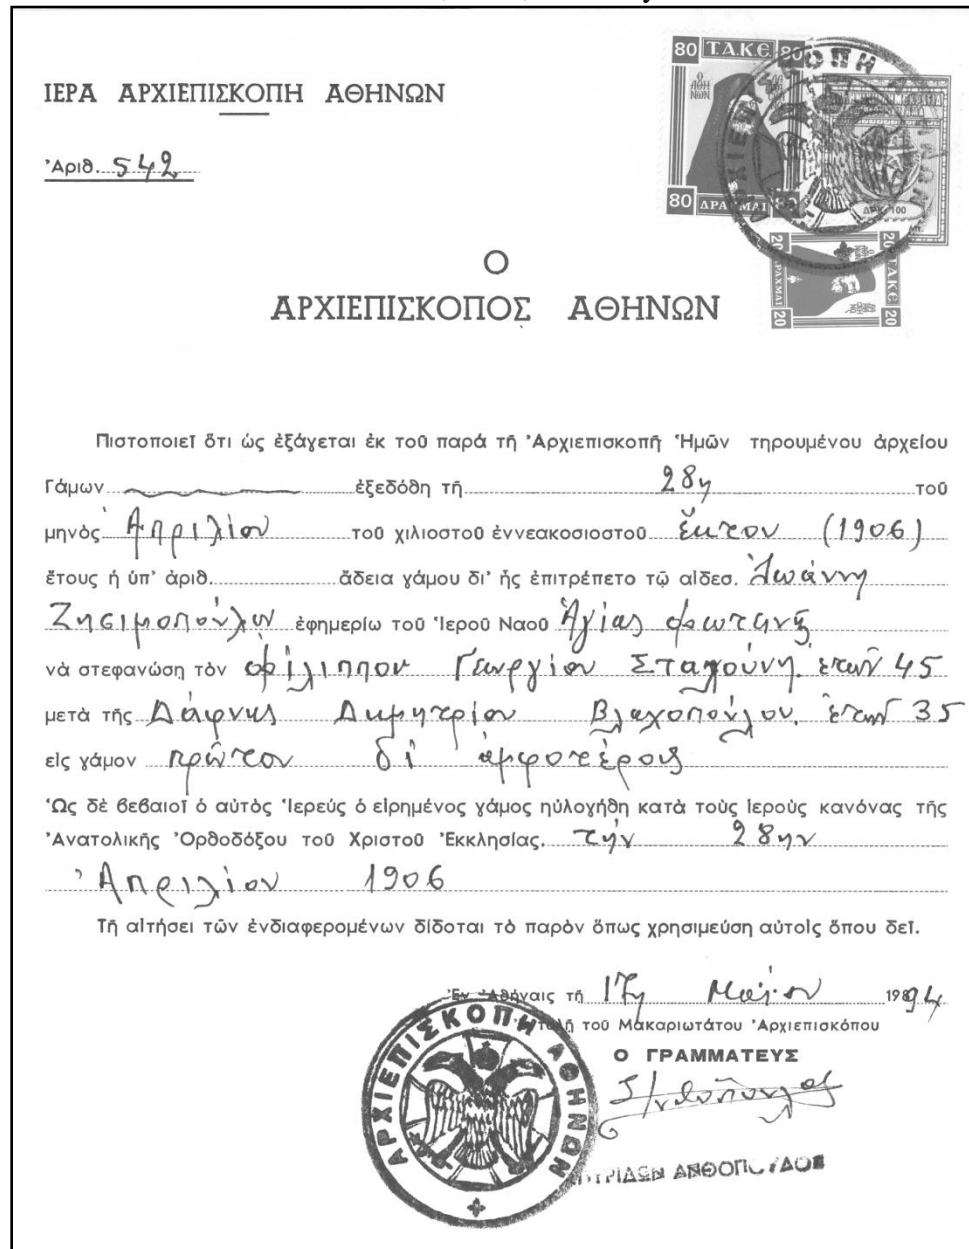 ΙΕΡΑ ΑΡΧΙΕΠΙΣΚΟΠΗ ΑΘΗΝΩΝ
Ἀριθ. 542
80 Τ.Α.Κ.Ε. 80
80 ΔΡΑΧΜΑΙ 80
ΔΡΧ. 100
20 Τ.Α.Κ.Ε. 20
20 ΔΡΑΧΜΑΙ 20
Ο
ΑΡΧΙΕΠΙΣΚΟΠΟΣ ΑΘΗΝΩΝ
Πιστοποιεῖ ὅτι ὡς ἐξάγεται ἐκ τοῦ παρά τῆ Ἀρχιεπισκοπῆ Ἡμῶν τηρουμένου ἀρχείου
Γάμων ἐξεδόθη τῆ 28η τοῦ
μηνὸς Ἀπριλίου τοῦ χιλιοστοῦ ἐννεακοσιοστοῦ ἕκτου (1906)
ἔτους ἡ ὑπ' ἀριθ. ἄδεια γάμου δι' ἧς ἐπιτρέπετο τῷ αἰδεσ. Ἰωάννη
Ζησιμοπούλου ἐφημερίω τοῦ Ἱεροῦ Ναοῦ Ἁγίας Φωτεινῆς
νὰ στεφανώση τὸν Φίλιππον Γεωργίου ἐτῶν 45
μετὰ τῆς Δάφνης Δημητρίου Βλαχοπούλου, ἐτῶν 35
εἰς γάμον πρῶτον δι' ἀμφοτέρους
Ὡς δὲ βεβαιοῖ ὁ αὐτὸς Ἱερεύς ὁ εἰρημένος γάμος ηὐλογήθη κατὰ τοὺς ἱεροὺς κανόνας τῆς
Ἀνατολικῆς Ὀρθοδόξου τοῦ Χριστοῦ Ἐκκλησίας. τὴν 28ην
Ἀπριλίου 1906
Τῆ αἰτήσει τῶν ἐνδιαφερομένων δίδοται τὸ παρὸν ὅπως χρησιμεύση αὐτοῖς ὅπου δεῖ.
Ἐν Ἀθήναις τῆ 17η Μαΐου 1994
τοῦ Μακαριωτάτου Ἀρχιεπισκόπου
Ο ΓΡΑΜΜΑΤΕΥΣ
ΑΝΘΟΠΟΥΛΟΣ
ΑΡΧΙΕΠΙΣΚΟΠΗ ΑΘΗΝΩΝ